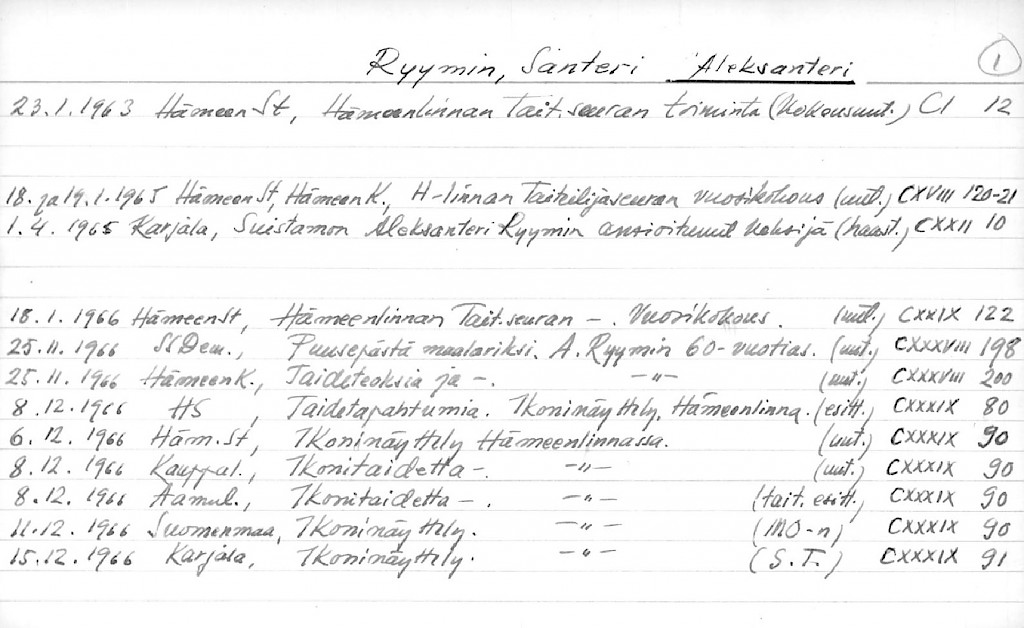 Ryymin, Santeri Aleksanteri 1
23.1.1963 HämeenSt, Hämeenlinnan Tait.seuran toiminta (Kokousuut.) CI 12
18. ja 19.1.1965 HämeenSt, HämeenK., H-linnan Taiteilijaseuran vuosikokous (uut.) CXVIII 120-21
1.4.1965 Karjala, Suistamon Aleksanteri Ryymin ansioitunut keksijä (haast.) CXXII 10
18.1.1966 HämeenSt, Hämeenlinnan Tait.seuran -. Vuosikokous. (uut.) CXXIX 122
25.11.1966 SsDem., Puusepästä maalariksi. A. Ryymin 60-vuotias. (uut.) CXXXVIII 198
25.11.1966 HämeenK., Taideteoksia ja -. -"- (uut.) CXXXVIII 200
8.12.1966 HS, Taidetapahtumia. Ikoninäyttely, Hämeenlinna. (esitt.) CXXXIX 80
6.12.1966 Häm.St, Ikoninäyttely Hämeenlinnassa. (uut.) CXXXIX 90
8.12.1966 Kauppal., Ikonitaidetta -. -"- (uut.) CXXXIX 90
8.12.1966 Aamul., Ikonitaidetta -. -"- (tait. esitt.) CXXXIX 90
11.12.1966 Suomenmaa, Ikoninäyttely. -"- (MO-n) CXXXIX 90
15.12.1966 Karjala, Ikoninäyttely. -"- (S.T.) CXXXIX 91